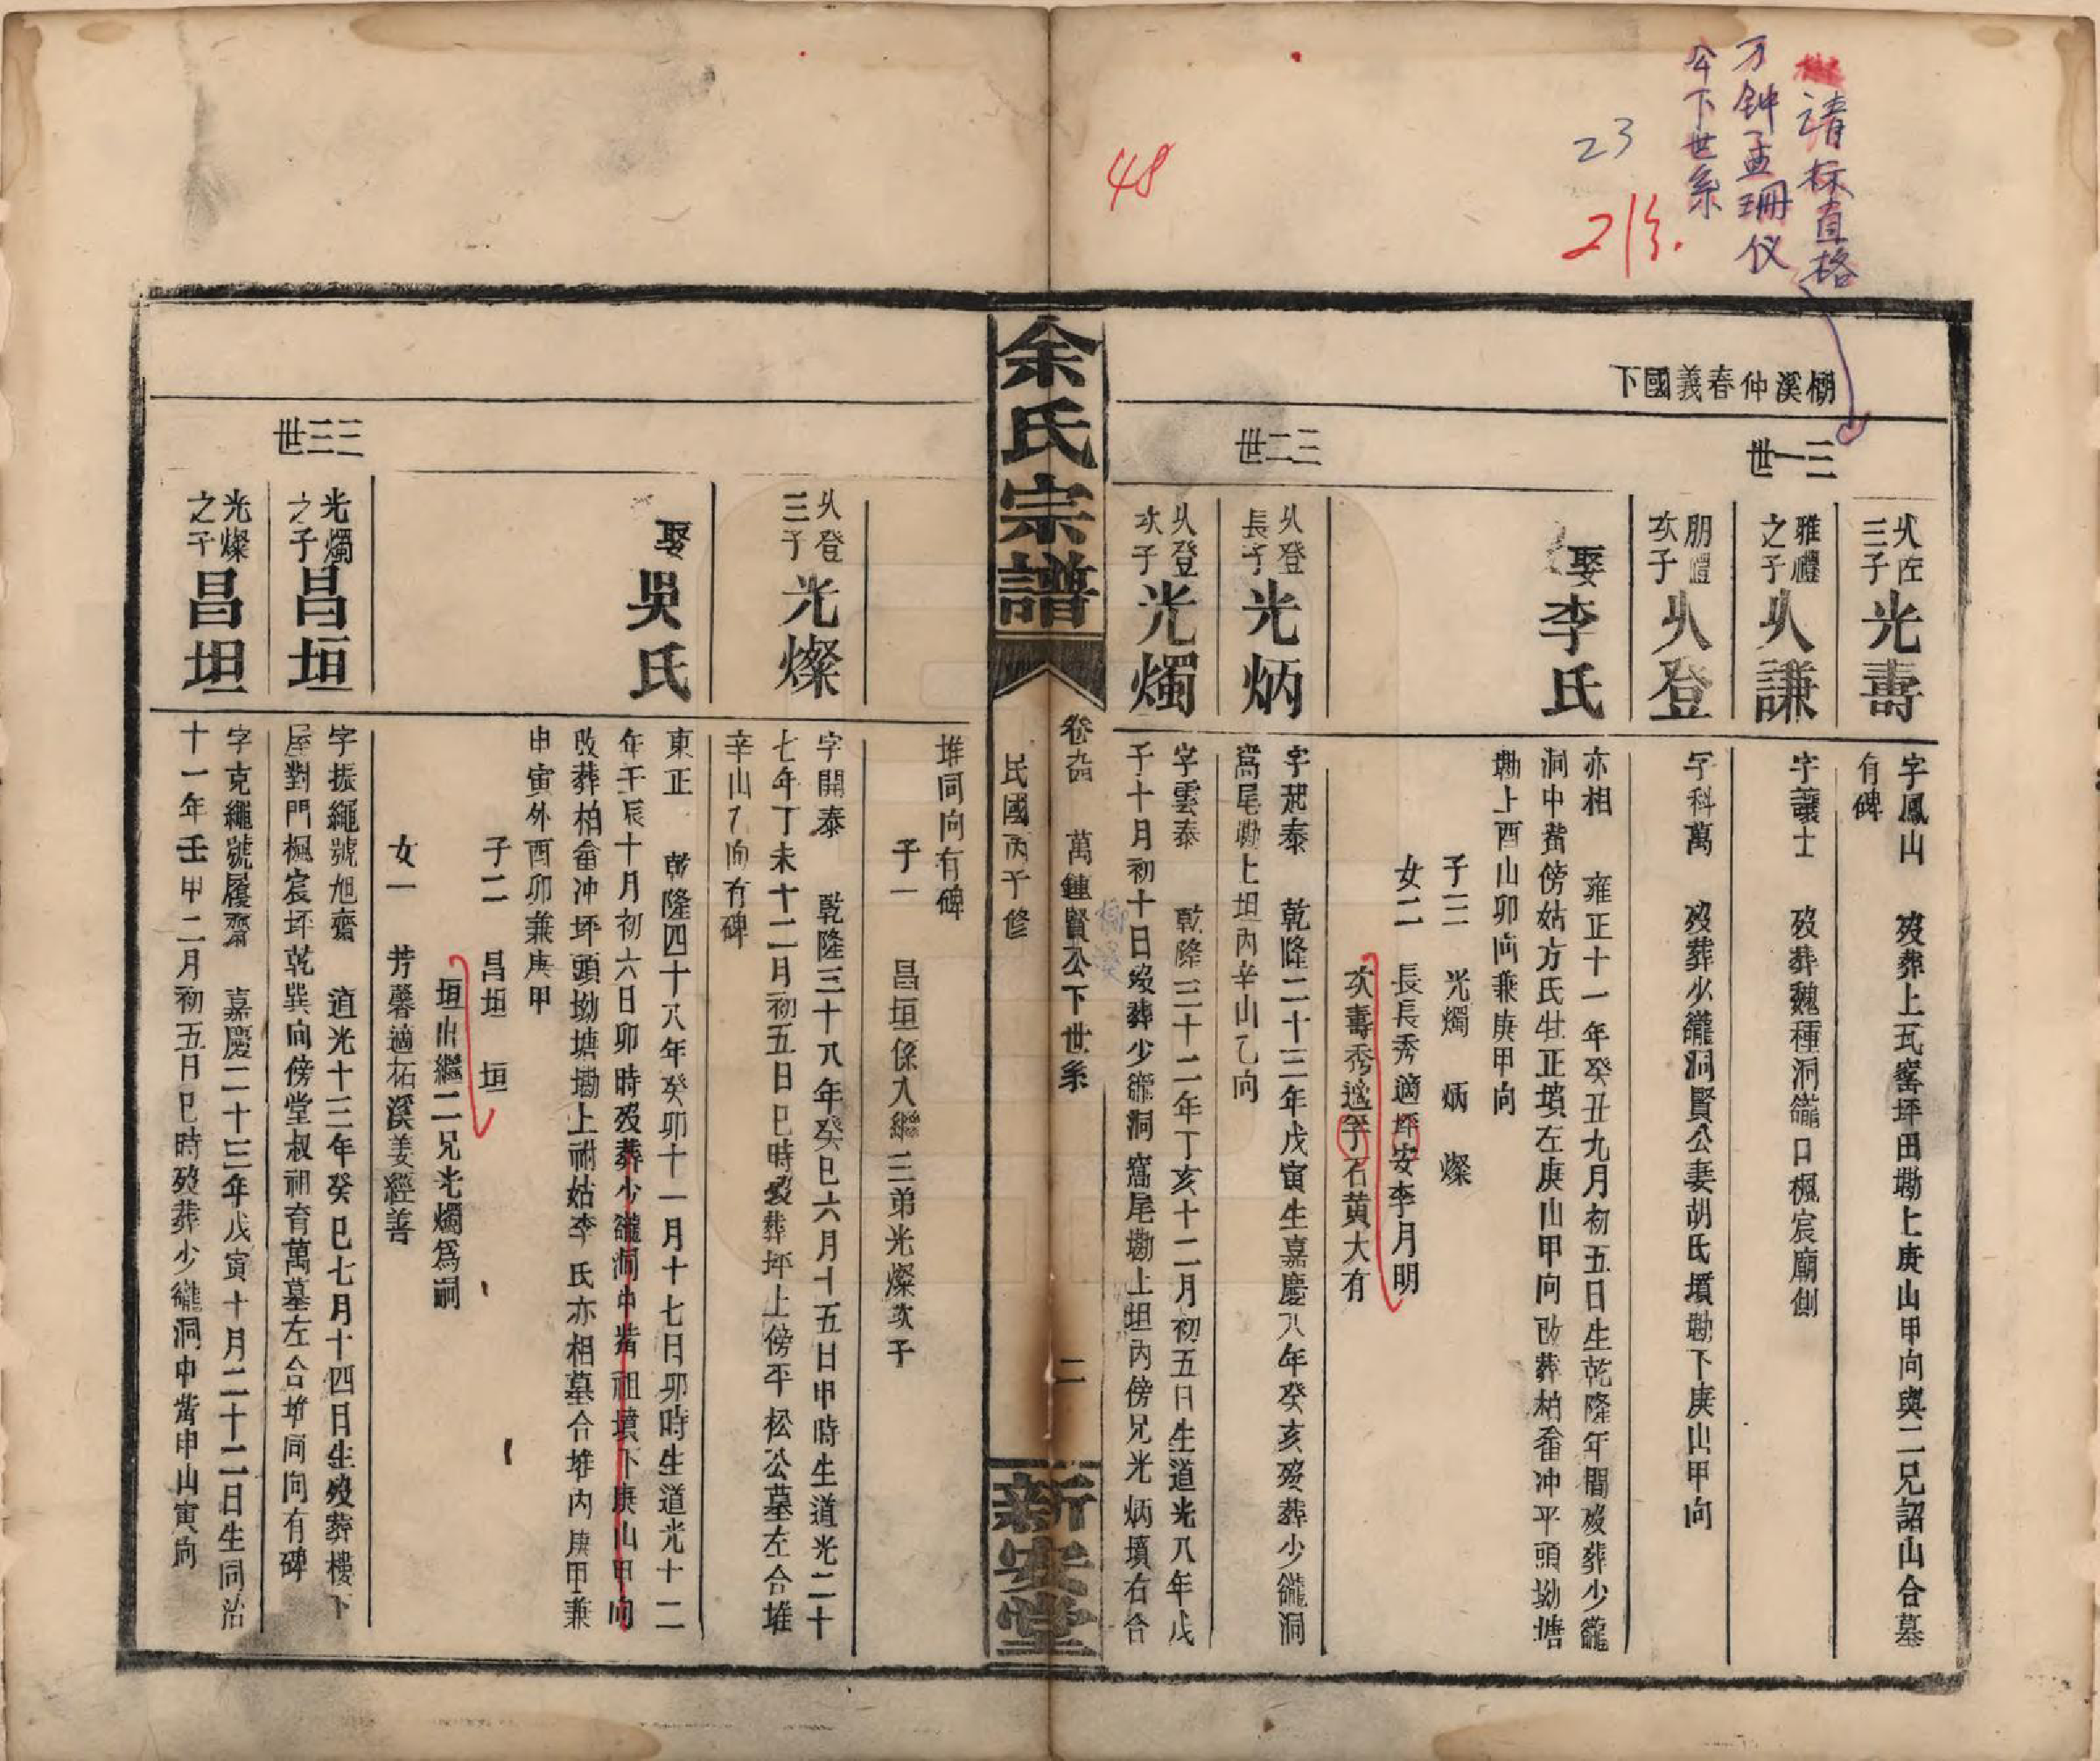 請标直格
万钟孟珊仪
今下世系
23
48
棚溪仲春義國下
三一世
从佐三子 光壽
字鳳山 歿葬上瓦窰坪田勘上庚山甲向與二兄詔山合墓
有碑
雅禮之子 从謙
字讓士 歿葬魏種洞龓口楓宸廟側
朋禮次子 从登
字科萬 歿葬少龓洞賢公妻胡氏墳勘下庚山甲向
娶李氏
亦相 雍正十一年癸丑九月初五日生乾隆年間歿葬少龓
洞中觜傍姑方氏牡正墳左庚山甲向改葬柏畬冲平頭坳塘
勘上酉山卯向兼庚甲向
子三 光燭 炳 燦
女二 長長秀適坪安李月明
次壽秀適李石黄大有
三二世
从登長子 光炳
字起泰 乾隆二十三年戊寅生嘉慶八年癸亥歿葬少龓洞
窩尾勘上坦內辛山乙向
从登次子 光燭
字雲泰 乾隆三十二年丁亥十二月初五日生道光八年戊
子十月初十日歿葬少龓洞窩尾勘上坦內傍兄光炳墳右合
余氏宗譜
卷 萬鍾賢公下世系
柳溪
民國丙子修
二
新安堂
堆同向有碑
子一 昌垣係入繼三弟光燦次子
从登三子 光燦
字開泰 乾隆三十八年癸巳六月十五日甲時生道光二十
七年丁未十二月初五日巳時歿葬坪上傍平松公墓左合堆
辛山乙向有碑
娶吳氏
東正 乾隆四十八年癸卯十一月十七日卯時生道光十二
年壬辰十月初六日卯時歿葬少龓洞中觜祖墳下庚山甲向
改葬柏畬冲坪頭坳塘勘上祔姑李氏亦相墓合堆內庚甲兼
申寅外酉卯兼庚甲
子二 昌坦 垣
垣出繼二兄光燭爲嗣
女一 芳馨適柘溪姜經善
三三世
光燭之子 昌垣
字振繩號旭齋 道光十三年癸巳七月十四日生歿葬樓下
屋對門楓宸坪乾巽向傍堂叔祖育萬墓左合堆同向有碑
光燦之子 昌坦
字克繩號履齋 嘉慶二十三年戊寅十月二十二日生同治
十一年壬申二月初五日巳時歿葬少龓洞中觜申山寅向